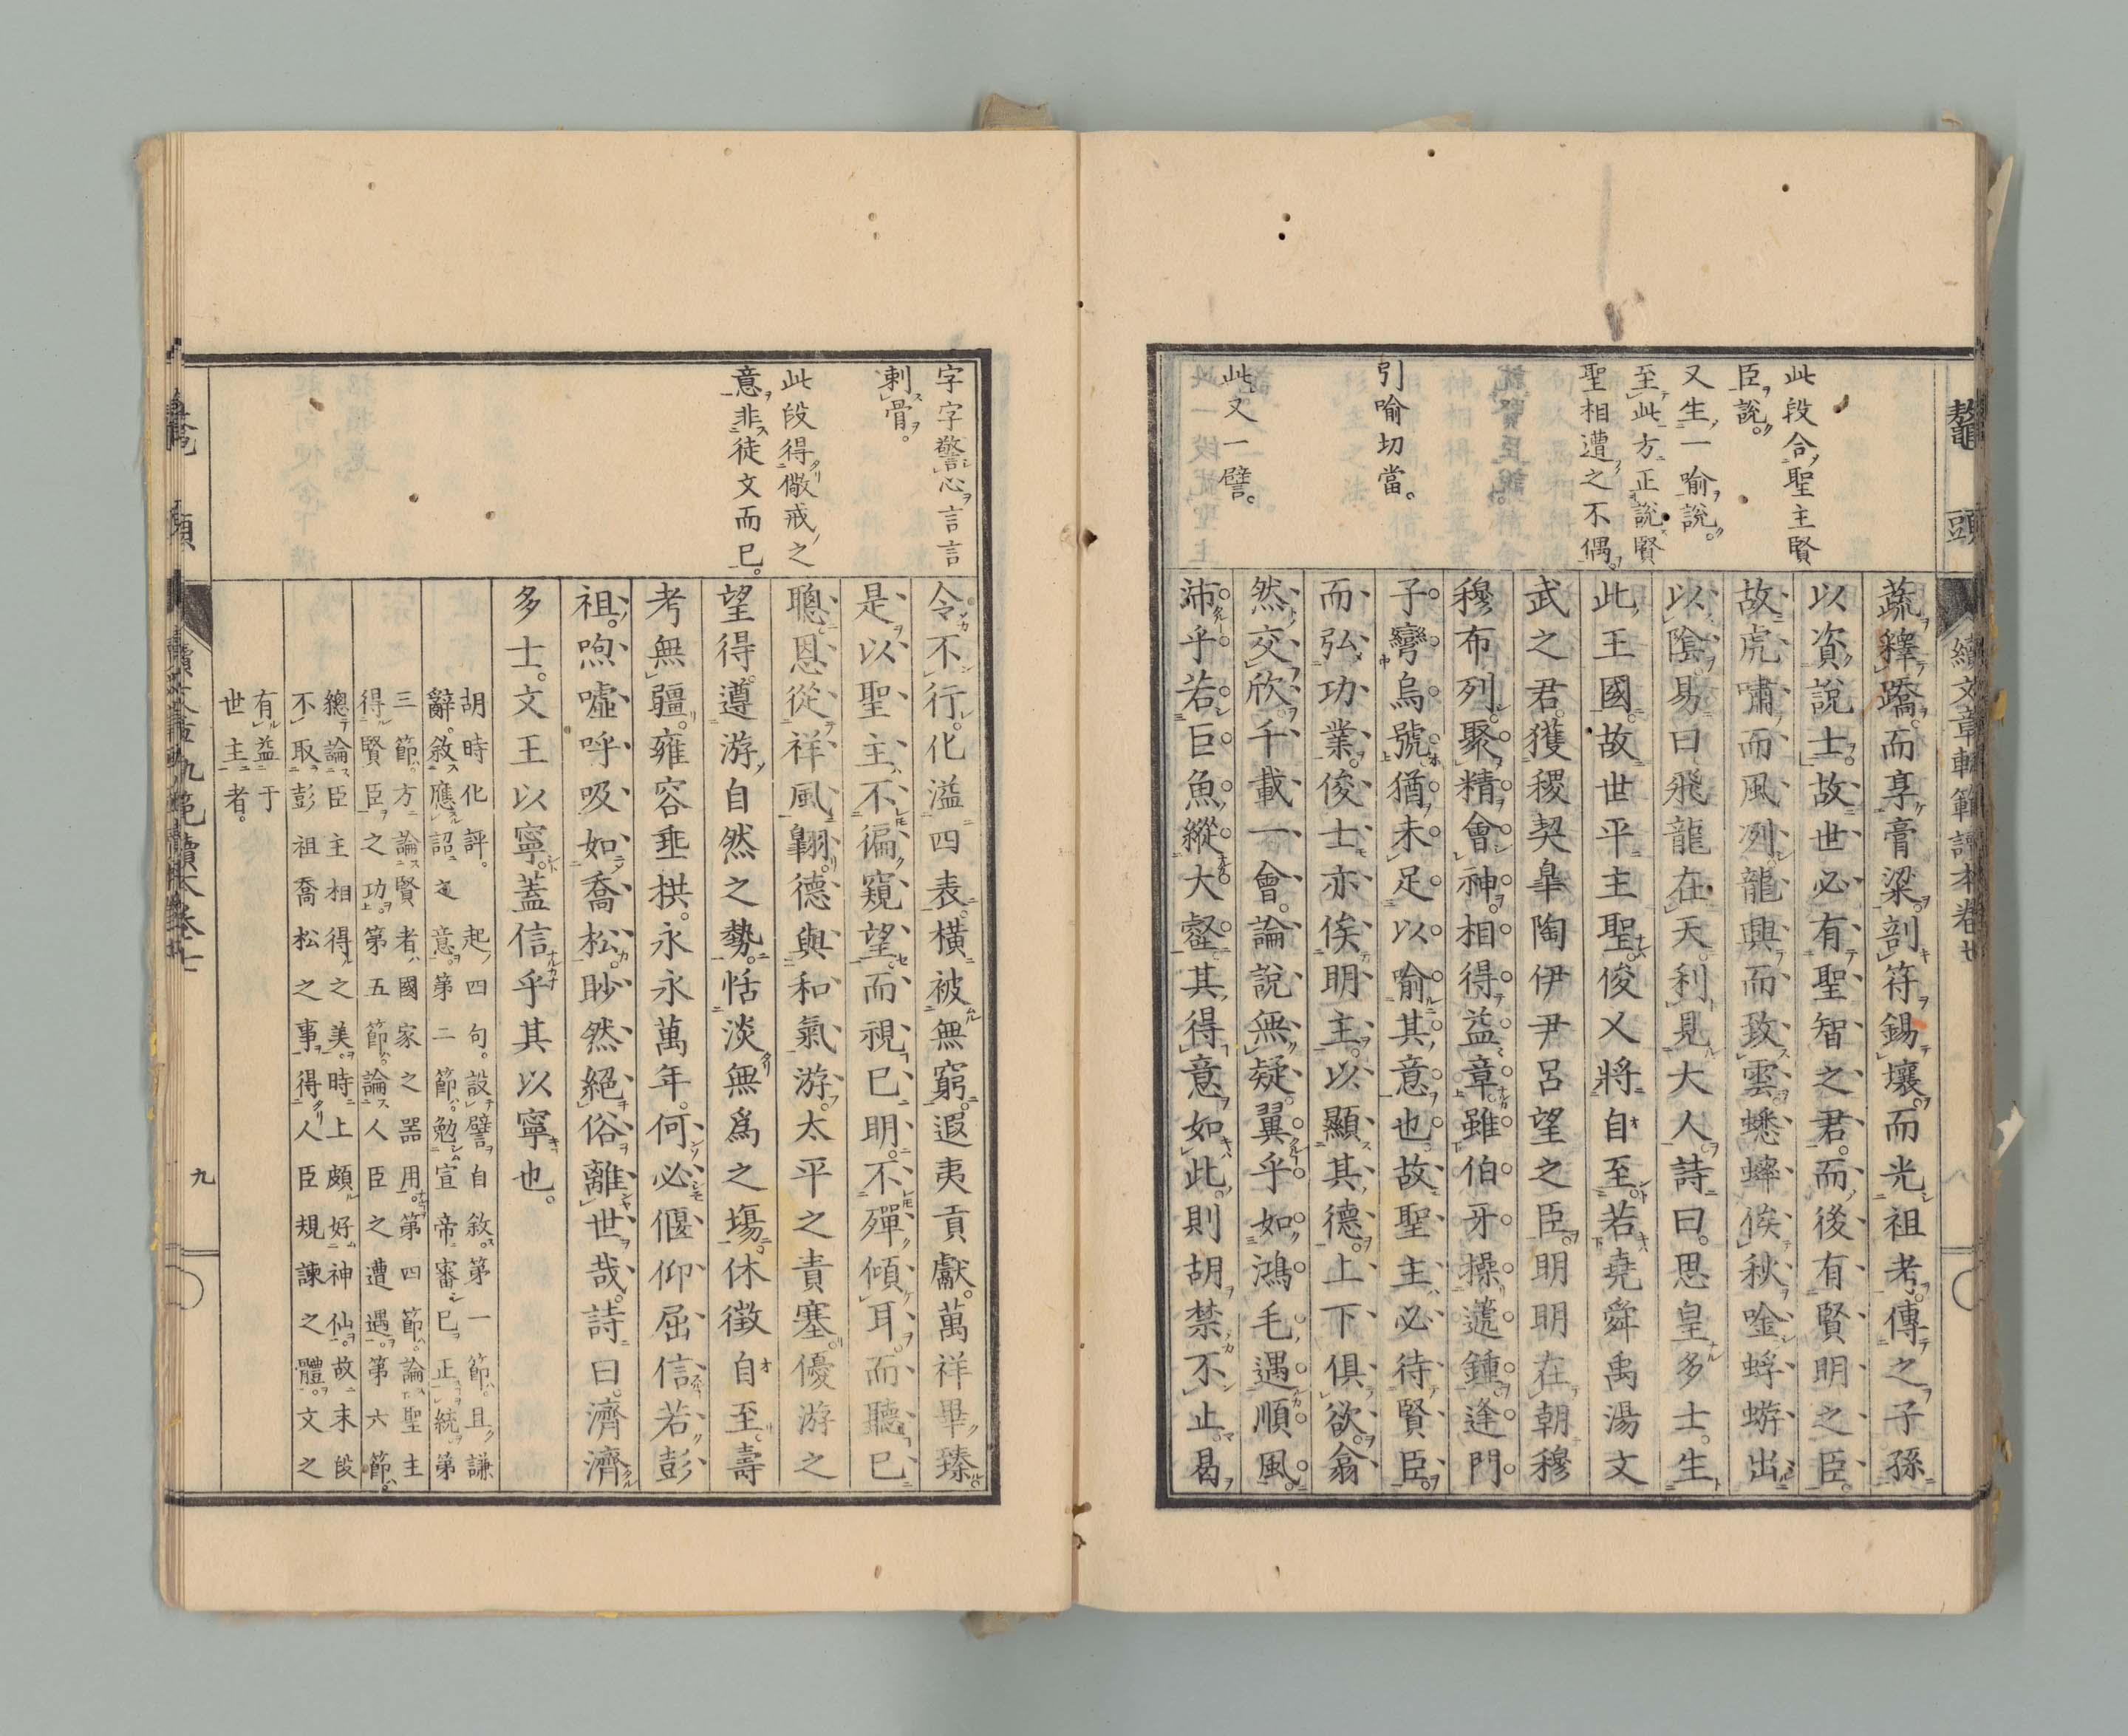 鼇頭
續文章軌範讀本卷七
此段合聖主賢
臣說。
又生一喻說。
至此方正說賢
聖相遭之不偶。
引喻切當。
此又一譬。
蔬釋蹻。而享膏粱。剖符錫壤。而光祖考。傳之子孫
以資說士。故世必有聖智之君。而後有賢明之臣。
故虎嘯而風冽。龍興而致雲。蟋蟀俟秋唫。蜉蝣出
以陰。易曰飛龍在天。利見大人。詩曰。思皇多士。生
此王國。故世平主聖。俊乂將自至。若堯舜禹湯文
武之君。獲稷契皐陶伊尹呂望之臣。明明在朝穆
穆布列。聚精會神。相得益章。雖伯牙操遞鍾。逢門
子彎烏號。猶未足以喻其意也。故聖主必待賢臣。
而弘功業。俊士亦俟明主。以顯其德。上下俱欲。翕
然交欣。千載一會。論說無疑。翼乎。如鴻毛遇順風。
沛乎若巨魚縱大壑。其得意如此。則胡禁不止。曷
字字警心。言言
刺骨。
此段得儆戒之
意。非徒文而已。
令不行。化溢四表。橫被無窮。遐夷貢獻。萬祥畢臻。
是以聖主不徧窺望而視已明。不殫傾耳。而聽已
聰。恩從祥風翺。德與和氣游。太平之責塞。優游之
望得。遵游自然之勢。恬淡無爲之塲。休徵自至。壽
考無疆。雍容垂拱。永永萬年。何必偃仰屈信若彭
祖。呴噓呼吸。如喬松。眇然絕俗。離世哉。詩曰。濟濟
多士。文王以寧。蓋信乎其以寧也。
胡時化評。起四句。設譬自敘。第一節。且謙
辭。敘應詔之意。第二節。勉宣帝審己正統。第
三節。方論賢者國家之器用。第四節。論聖主
得賢臣之功。第五節。論人臣之遭遇。第六節。
總論臣主相得之美。時上頗好神仙。故末段
不取彭祖喬松之事。得人臣規諫之體。文之
有益于
世主者。
九